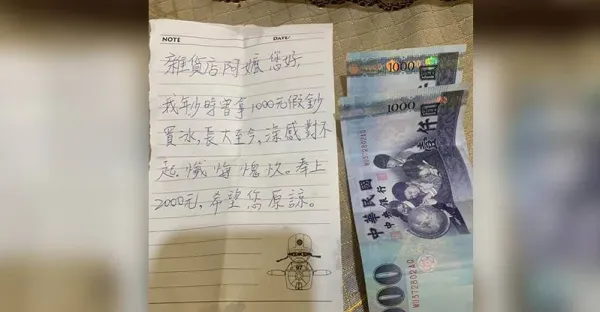 NOTE DATE/
雜貨店阿嬤您好
我年少時曾拿1000元假鈔
買水,長大至今,深感對不
起.懺悔愧疚.奉上
2000元,希望您原諒。
1000
1000
壹仟圓
中華民國
中央銀行